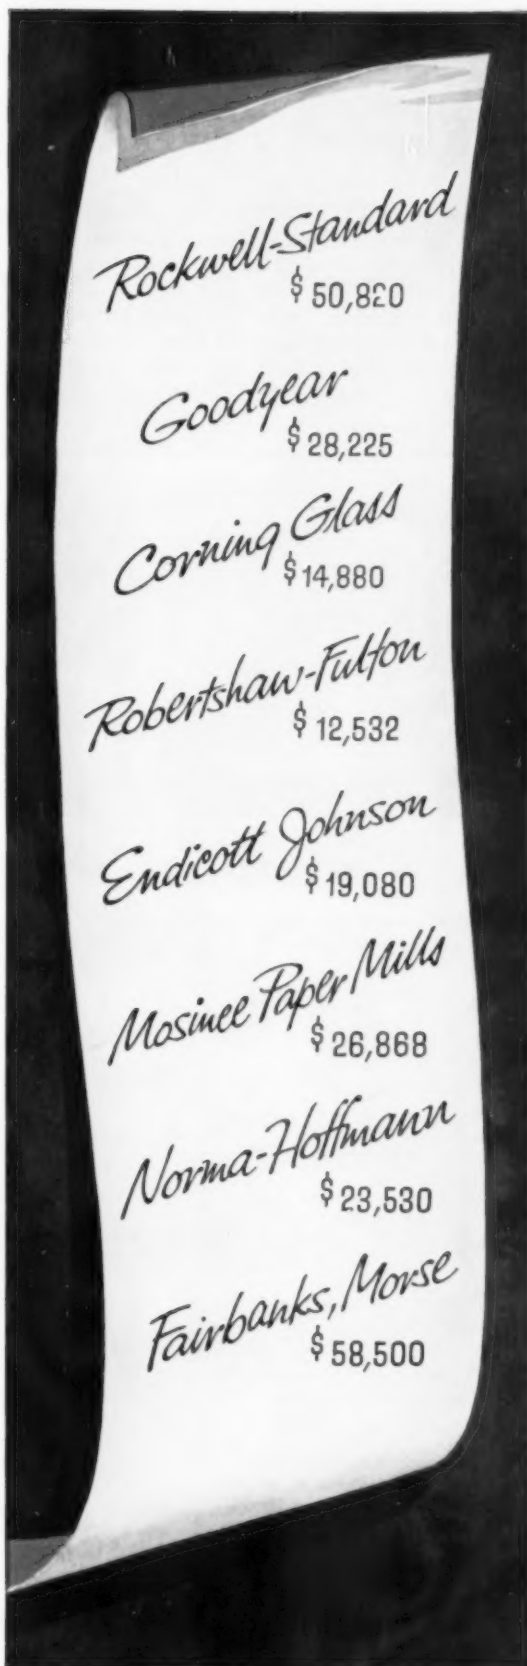 Rockwell-Standard
$ 50,820
Goodyear
$ 28,225
Corning Glass
$ 14,880
Robertshaw-Fulton
$ 12,532
Endicott Johnson
$ 19,080
Mosinee Paper Mills
$ 26,868
Norma-Hoffmann
$ 23,530
Fairbanks, Morse
$ 58,500